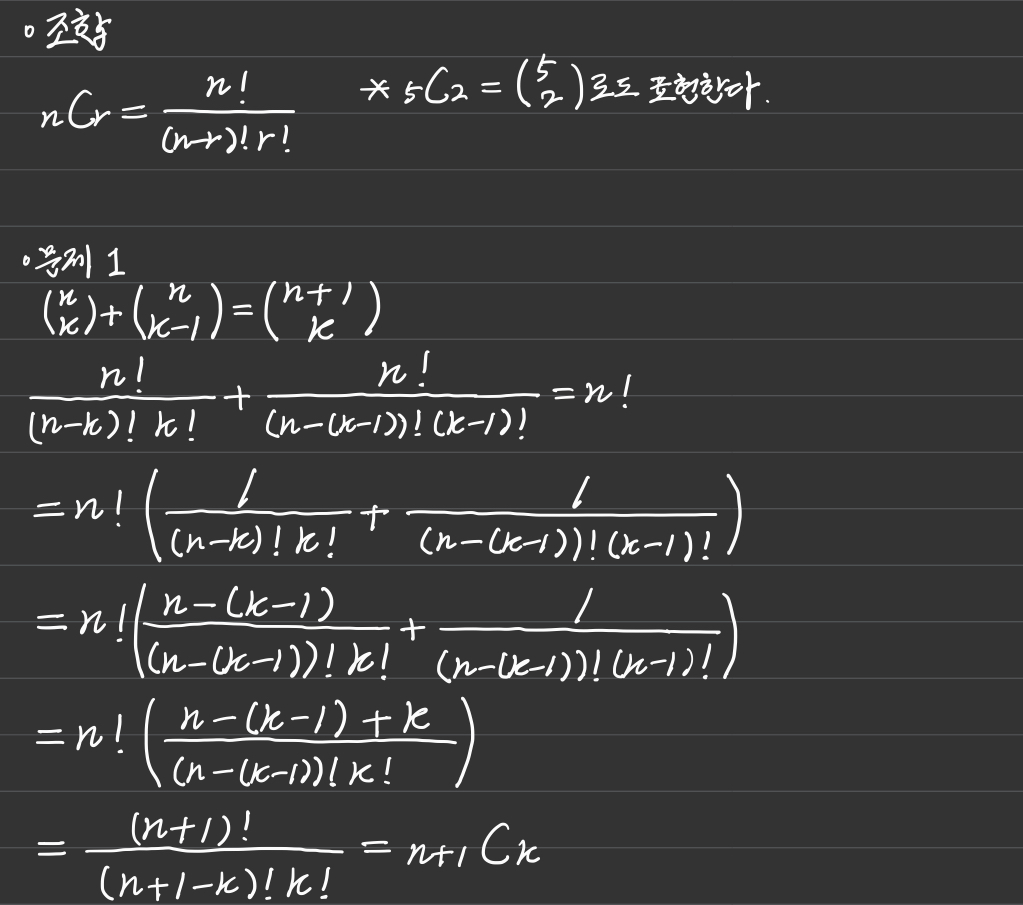 ◦ 조합
nCr = n! / (n-r)! r!   * 5C2 = (5 2)로도 표현한다.
◦ 문제 1
(n k) + (n k-1) = (n+1 k)
n! / (n-k)! k! + n! / (n-(k-1))! (k-1)! = n!
= n! (1 / (n-k)! k! + 1 / (n-(k-1))! (k-1)!)
= n! (n-(k-1) / (n-(k-1))! k! + 1 / (n-(k-1))! (k-1)!)
= n! (n-(k-1)+k / (n-(k-1))! k!)
= (n+1)! / (n+1-k)! k! = n+1Ck